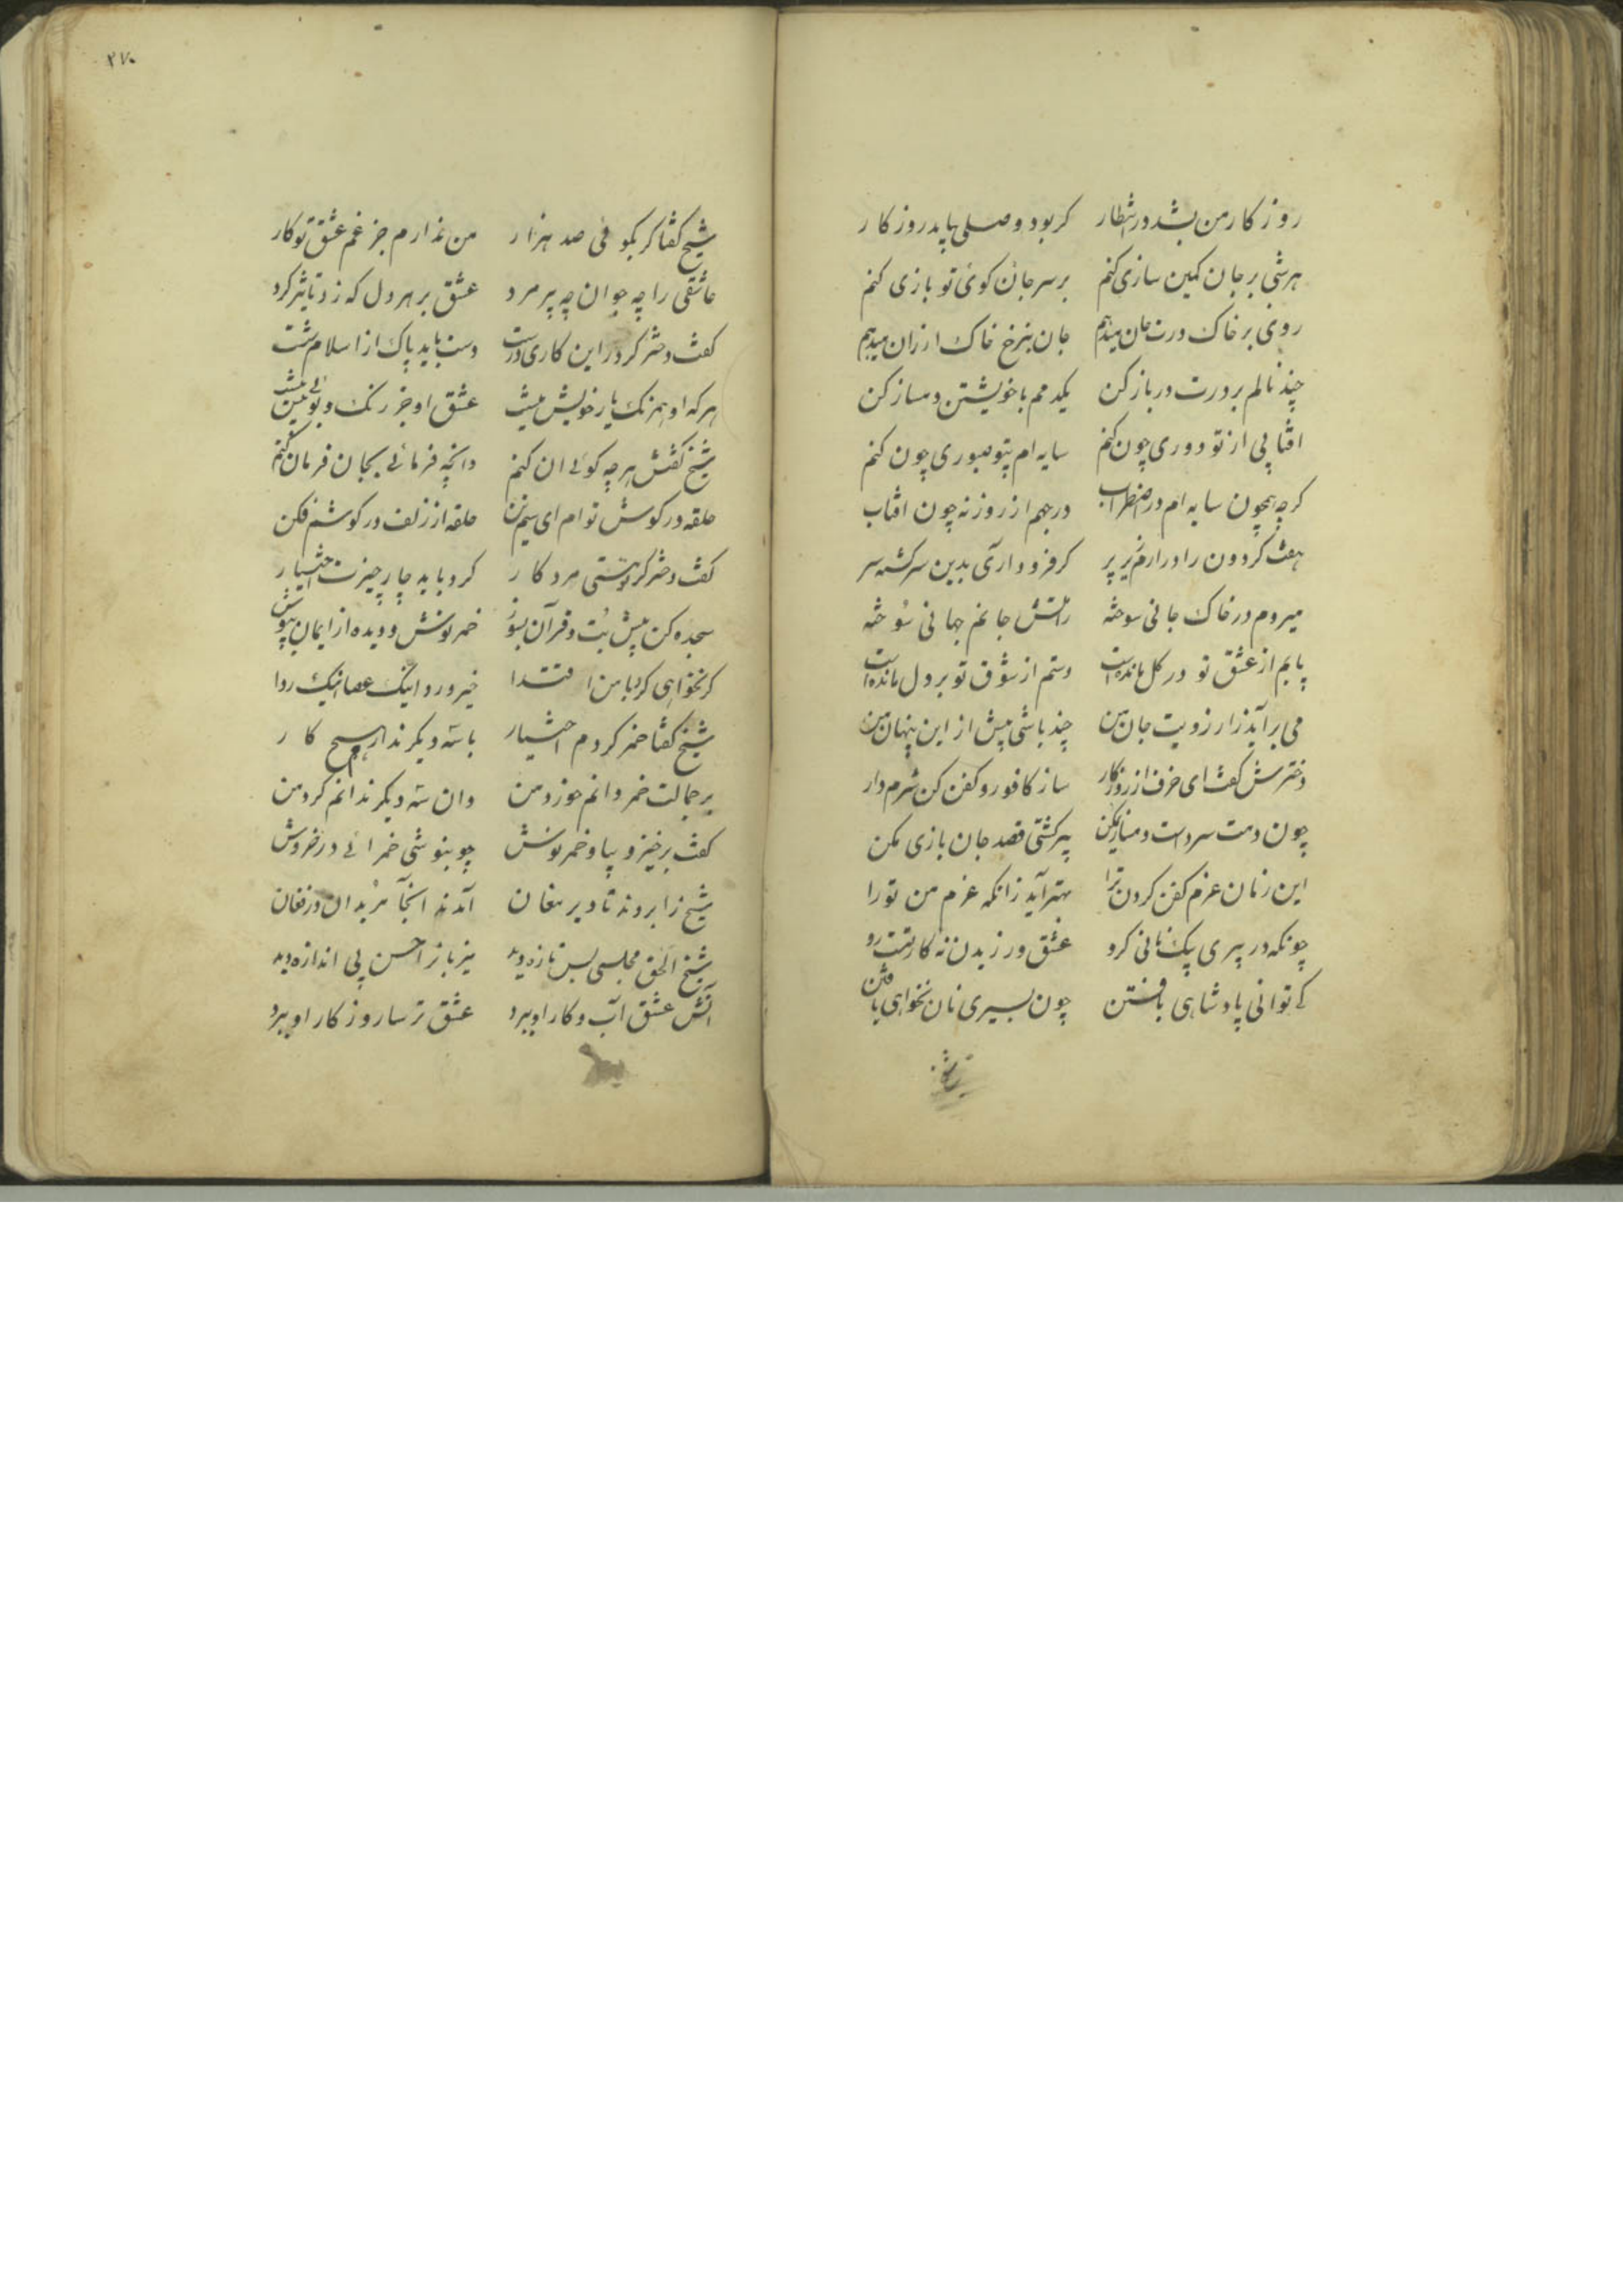 روز کار من بشد در انتظار کر بود وصلی بیاید روز کار
هر شبی بر جان کمین سازی کنم بر سر جان کوی تو بازی کنم
روی بر خاک درت جان میدهم جان بنرخ خاک ارزان میدهم
چند نالم بر درت در باز کن یکدمم با خویشتن دمساز کن
افتابی از تو دوری چون کنم سایه ام بیتو صبوری چون کنم
کرچه همچون سایه ام در اضطراب درجهم از روزنه چون افتاب
هفت کردون را درارم زیر پر کر فرود آری بدین سرکشته سر
میروم در خاک جانی سوخته زاتش جانم جهانی سوخته
پایم از عشق تو در کل مانده است دستم از شوق تو بر دل مانده است
می برآید زارزویت جان من چند باشی پیش از این پنهان من
دخترش کفت ای خرف از روزکار ساز کافور و کفن کن شرم دار
چون دمت سردست دمسازی مکن پیر کشتی قصد جان بازی مکن
این زمان عزم کفن کردن ترا بهتر آید زانکه عزم من تو را
چونکه در پیری بیک نانی کرو عشق ورزیدن نه کار تست رو
کے توانی پادشاهی یافتن چون بسیری نان نخواهی یافتن
شیخ
۲۷۰
شیخ کفتا کر بکوئی صد هزار من ندارم جز غم عشق تو کار
عاشقی را چه جوان چه پیر مرد عشق بر هر دل که زد تاثیر کرد
کفت دختر کر در این کاری درست دست باید پاک از اسلام شست
هر که او همرنک یار خویش نیست عشق او جز رنک و بوئی بیش نیست
شیخ کفتش هر چه کوئے ان کنم وانچه فرمائے بجان فرمان کنم
حلقه در کوش تو ام ای سیم تن حلقه از زلف در کوشم فکن
کفت دختر کر تو هستی مرد کار کرد باید چار چیزت اختیار
سجده کن پیش بُت و قرآن بسوز خمر نوش و دیده از ایمان بدوز
کر نخواهی کرد با من اقتدا خیز و رو اینک عصا اینک ردا
شیخ کفتا خمر کردم اختیار با سه دیکر ندارم هیچ کار
بر جمالت خمر دانم خوردمن وان سه دیکر ندانم کردمن
کفت برخیز و بیا و خمر نوش چو بنوشی خمر ائے در خروش
شیخ را بردند تا دیر مغان آمدند آنجا مریدان در فغان
شیخ الحق مجلسی بس تازه دید میزبان را حسن بی اندازه دید
آتش عشق آب و کار او ببرد عشق ترسا روز کار او ببرد